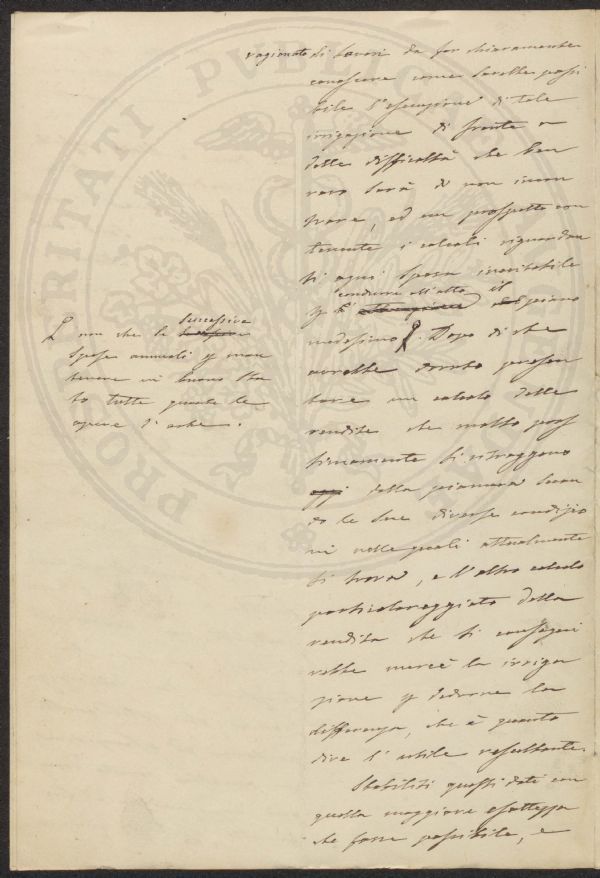 ragionato di lavori da far chiaramente
conoscere come sarebbe possi
bile l'esecuzione di tale
irrigazione di fronte a
delle difficoltà che ben
raro sarà di non incon
trare, ed un prospetto con
tenente i calcoli riguardan
ti ogni spesa inevitabile
condurre all'atto il
piano
medesimo. Dopo di che
avrebbe dovuto presen
tare un calcolo delle
rendite che molto pros
simamente si ritraggono
oggi dalla pianura secon
do le sue diverse condizio
ni nelle quali attualmente
si trova, e l'altro calcolo
particolareggiato della
rendita che si consegui
rebbe mercè la irriga
zione p dedurne la
differenza, che è quanto
dire l'utile resultante.
Stabiliti questi dati con
quella maggiore esattezza
che fosse possibile, e
successive
non che le
spese annuali p man
tenere in buono sta
to tutte quante le
opere d'arte.
PROSPERITATI PVBLICAE AVGENDAE